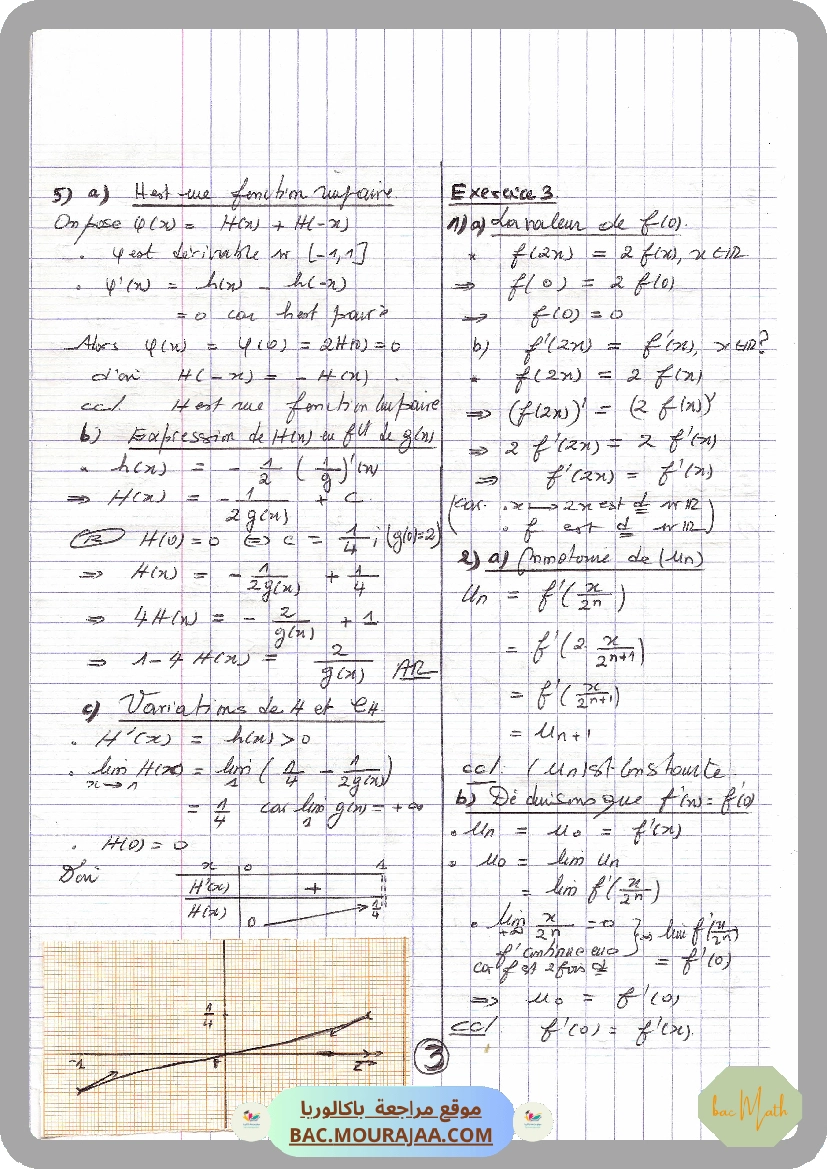 5) a) H est une fonction impaire
On pose φ(x) = H(x) + H(-x)
. φ est dérivable sur [-1,1]
. φ'(x) = h(x) - h(-x)
= 0 car h est paire
Alors φ(x) = φ(0) = 2H(0) = 0
d'où H(-x) = -H(x).
ccl. H est une fonction impaire
b) Expression de H(x) en f° de g(x)
. h(x) = - 1/2 (1/g)'(x)
⇒ H(x) = - 1/2g(x) + C
H(0) = 0 ⇔ c = 1/4 ; (g(0)=2)
⇒ H(x) = - 1/2g(x) + 1/4
⇒ 4H(x) = - 2/g(x) + 1
⇒ 1-4H(x) = 2/g(x)
c) Variations de H et CH
. H'(x) = h(x) > 0
. lim x→1 H(x) = lim 1 (1/4 - 1/2g(x))
= 1/4 car lim 1 g(x) = +∞
. H(0) = 0
D'où
x 0 1
H'(x) +
H(x) 0 1/4
1/4
-1
3
Exercice 3.
1) a) La valeur de f(0).
* f(2x) = 2 f(x), x ∈ IR
⇒ f(0) = 2 f(0)
⇒ f(0) = 0
b) f'(2x) = f'(x), x ∈ IR ?
* f(2x) = 2 f(x)
⇒ (f(2x))' = (2 f(x))'
⇒ 2 f'(2x) = 2 f'(x)
⇒ f'(2x) = f'(x)
(car . x → 2x est d sur IR
. f est d sur IR)
2) a) Monotonie de (Un)
Un = f'(x/2^n)
= f'(2 · x/2^(n+1))
= f'(x/2^(n+1))
= Un+1
ccl. (Un) est constante
b) Déduisons que f'(x) = f'(0)
. Un = U0 = f'(x)
. U0 = lim Un
= lim f'(x/2^n)
. lim +∞ x/2^n = 0 } ⇒ lim f'(x/2^n)
f' continue en 0
car f est 2 fois d = f'(0)
⇒ U0 = f'(0)
ccl f'(0) = f'(x).
موقع مراجعة باكالوريا
BAC.MOURAJAA.COM
bac Math